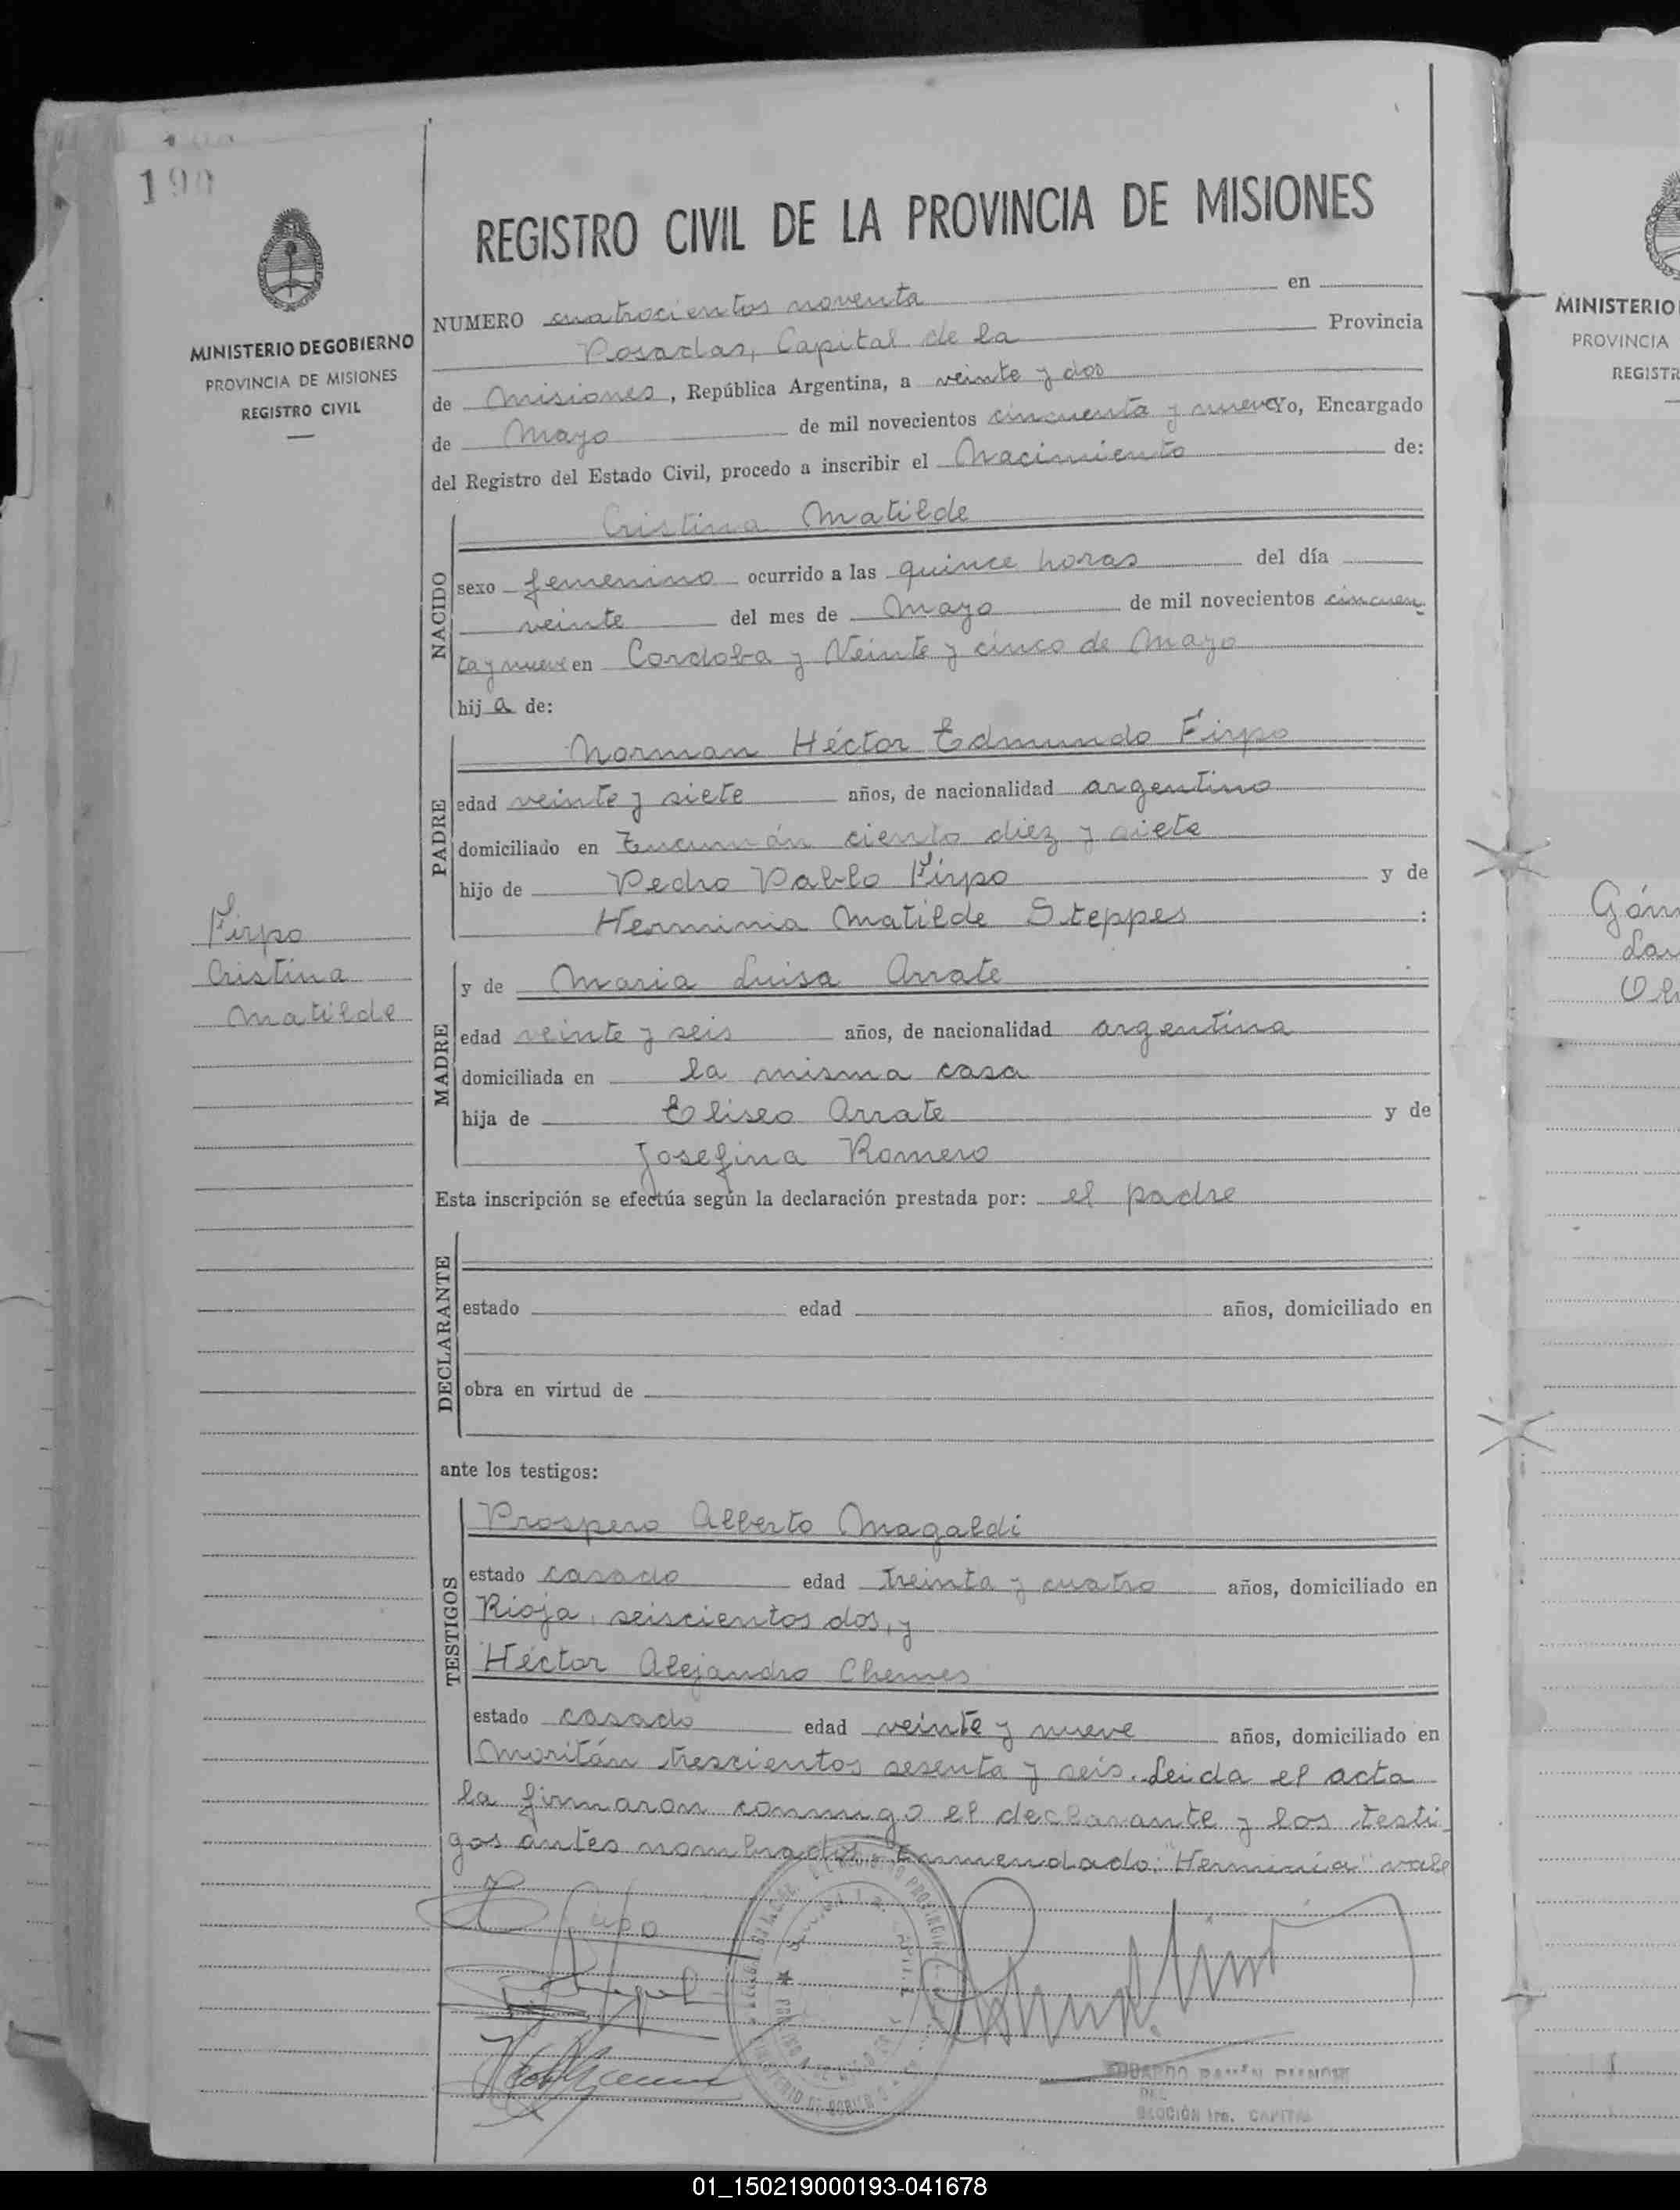 190
MINISTERIO DE GOBIERNO
PROVINCIA DE MISIONES
REGISTRO CIVIL
Firpo
Cristina
Matilde
REGISTRO CIVIL DE LA PROVINCIA DE MISIONES
NUMERO cuatrocientos noventa en
Posadas, Capital de la Provincia
de Misiones, República Argentina, a veinte y dos
de Mayo de mil novecientos cincuenta y nueve Yo, Encargado
del Registro del Estado Civil, procedo a inscribir el Nacimiento de:
NACIDO
Cristina Matilde
sexo femenino ocurrido a las quince horas del día
veinte del mes de Mayo de mil novecientos cincuen
ta y nueve en Cordoba y Veinte y cinco de Mayo
hij a de:
PADRE
Norman Héctor Edmundo Firpo
edad veinte y siete años, de nacionalidad argentino
domiciliado en Tucumán ciento diez y siete
hijo de Pedro Pablo Firpo y de
Herminia Matilde Steppes :
MADRE
y de Maria Luisa Arrate
edad veinte y seis años, de nacionalidad argentina
domiciliada en la misma casa
hija de Eliseo Arrate y de
Josefina Romero
Esta inscripción se efectúa según la declaración prestada por: el padre
DECLARANTE
estado edad años, domiciliado en
obra en virtud de
ante los testigos:
TESTIGOS
Prospero Alberto Magaldi
estado casado edad treinta y cuatro años, domiciliado en
Rioja, seiscientos dos, y
Héctor Alejandro Chemes
estado casado edad veinte y nueve años, domiciliado en
Moritán trescientos sesenta y seis. Leida el acta
la firmaron conmigo el declarante y los testi
gos antes nombrados. Enmendado: "Herminia" vale
EDUARDO RAMÓN
SECCIÓN 1ra. CAPITAL
MINISTERIO
PROVINCIA
REGISTR
01_150219000193-041678